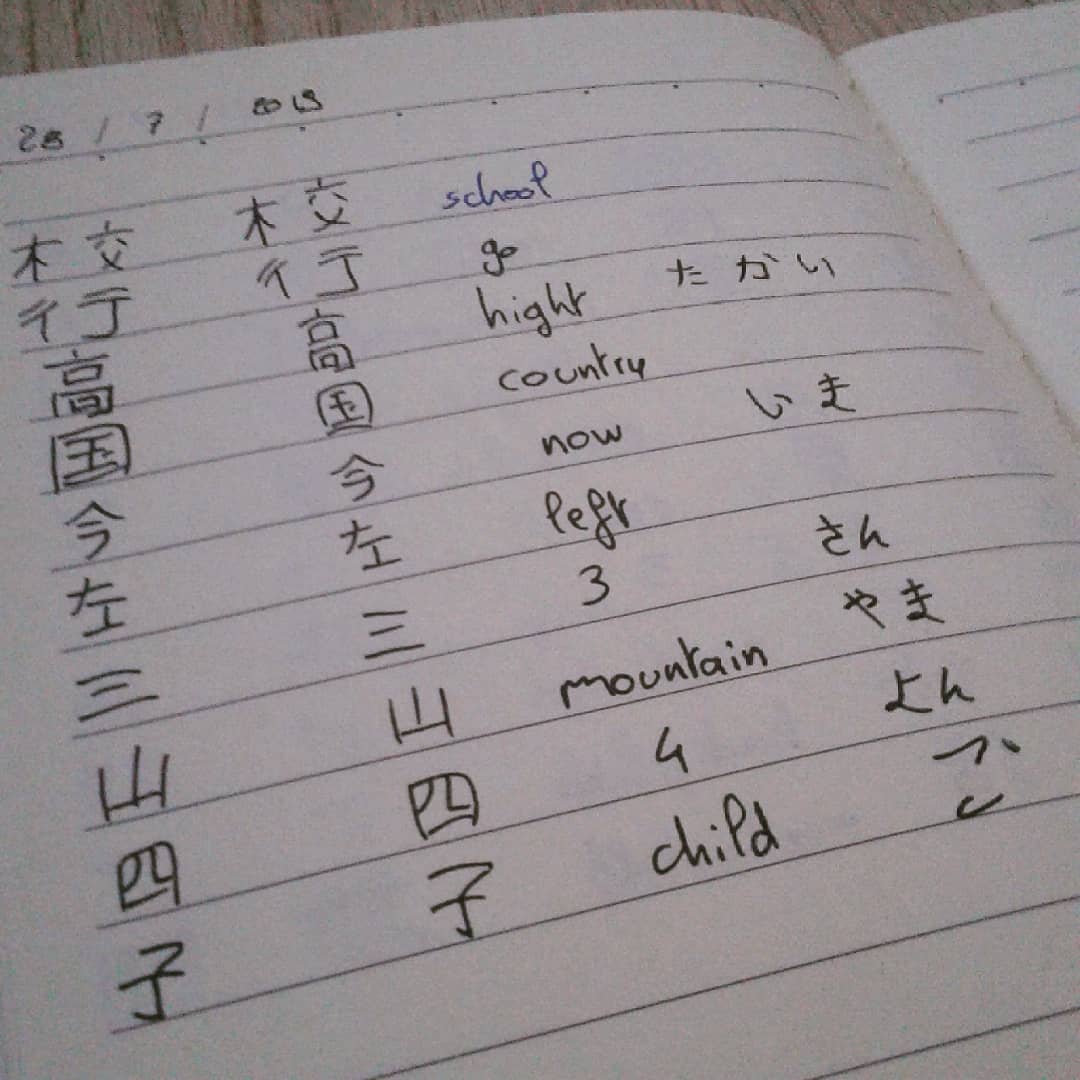 28 / 7 / 2019
校 校 school
行 行 go
高 高 hight たかい
国 国 country
今 今 now いま
左 左 left
三 三 3 さん
山 山 mountain やま
四 四 4 よん
子 子 child こ